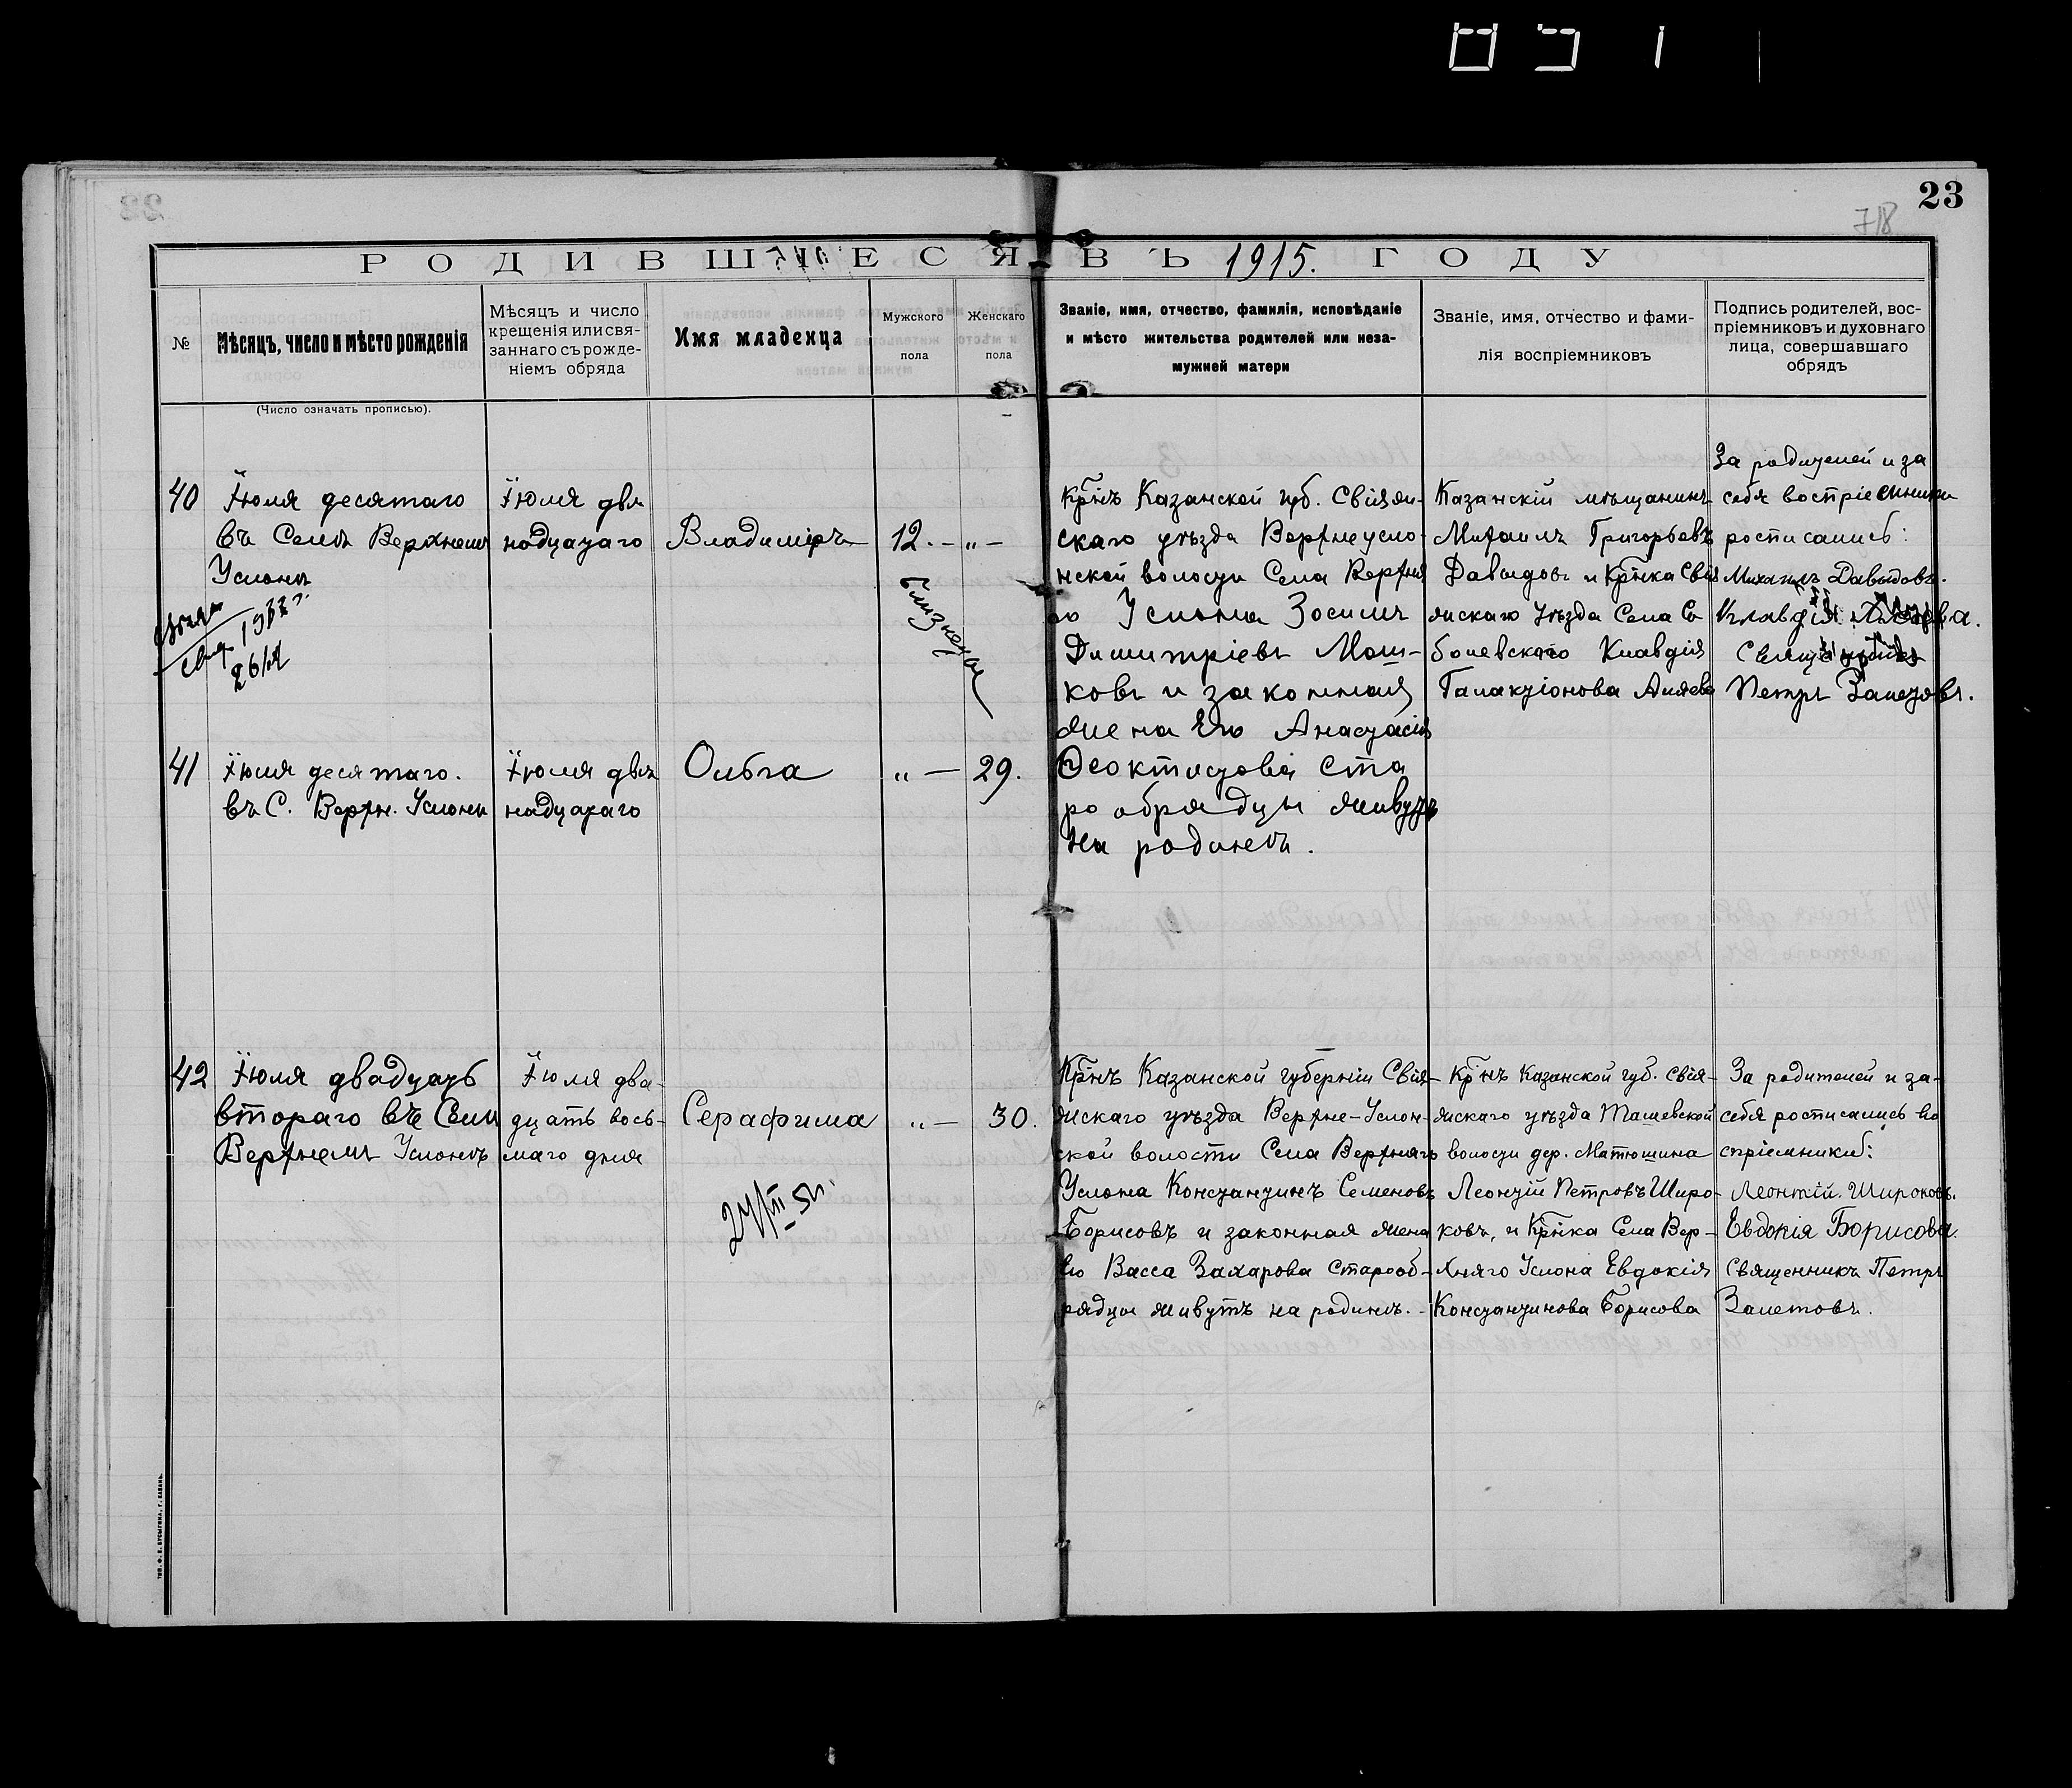 23
718
РОДИВШІЕСЯ ВЪ 1915. ГОДУ
№
Мѣсяцъ, число и мѣсто рожденія
(Число означать прописью).
Мѣсяцъ и число
крещенія или свя-
заннаго съ рожде-
ніемъ обряда
Имя младенца
Мужского
пола
Женскаго
пола
Званіе, имя, отчество, фамилія, исповѣданіе
и мѣсто жительства родителей или неза-
мужней матери
Званіе, имя, отчество и фами-
лія воспріемниковъ
Подпись родителей, вос-
пріемниковъ и духовнаго
лица, совершавшаго
обрядъ
40
Іюля десятаго
въ Селѣ Верхнемъ
Услонѣ
Іюля двѣ
надцатаго
Владиміръ
12. — „ —
близнецы
Кр̃нъ Казанской губ. Свіяж-
скаго уѣзда Верхнеусло-
нской волости Села Верхня
го Услона Зосимъ
Димитріевъ Мош-
ковъ и законная
жена Его Анастасія
Ѳеоктистова ста
рообрядцы живутъ
на родинѣ.
Казанскій мѣщанинъ
Михаилъ Григорьевъ
Давыдовъ и Кр̃нка Свія
жскаго уѣзда Села Со
болевского Клавдія
Галактіонова
За родителей и за
себя воспріемники
росписались:
Михаилъ Давыдовъ.
Клавдія
Священникъ
Петръ Залетовъ.
41
Іюля десятаго.
въ С. Верхн. Услонѣ
Іюля двѣ
надцатаго
Ольга
„ — 29.
42
Іюля двадцать
второго въ Селѣ
Верхнемъ Услонѣ
Іюля два-
дцать вось-
маго дня
Серафима
„ — 30.
Кр̃нъ Казанской губерніи Свія-
жскаго уѣзда Верхне-Услон-
ской волости Села Верхняго
Услона Константинъ Семеновъ
Борисовъ и законная жена
Его Васса Захарова старооб-
рядцы живутъ на родинѣ.
Кр̃нъ Казанской губ. Свія-
жскаго уѣзда Ташевской
волости дер. Матюшина
Леонтій Петровъ Широ-
ковъ, и Кр̃нка Села Вер-
хняго Услона Евдокія
Константинова Борисова
За родителей и за-
себя росписались во
спріемники:
Леонтій. Широковъ.
Евдокія Борисова.
Священникъ Петръ
Залетовъ.
ТИП. Ф. Е. БУСЫГИНА, Г. КАЗАНЬ.